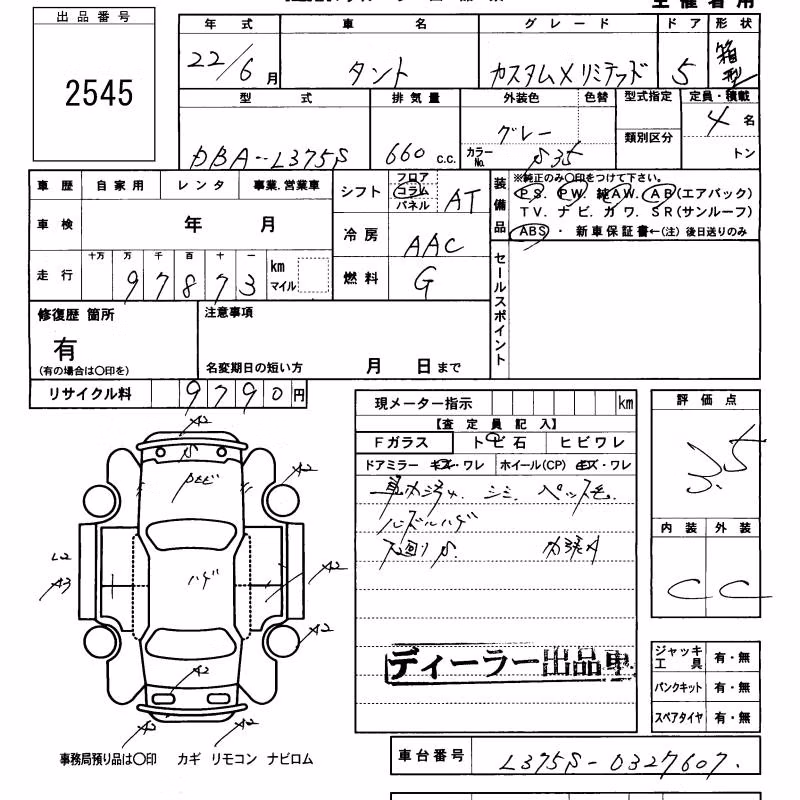 出品番号
2545
年式 車名 グレード ドア 形状
22/6月 タント カスタムXリミテッド 5 箱型
型式 排気量 外装色 色替 型式指定 定員・積載
DBA-L375S 660 c.c. グレー カラーNo. S35 類別区分 4名
トン
車歴 自家用 レンタ 事業.営業車
シフト フロア コラム パネル AT
装備品
※純正のみ〇印をつけて下さい。
PS. PW. 純AW. AB(エアバック)
TV. ナビ. カワ. SR(サンルーフ)
ABS ・ 新車保証書←(注) 後日送りのみ
車検 年 月
冷房 AAC
走行 十万 万 千 百 十 一 km マイル
97873
燃料 G
セールスポイント
修復歴 箇所
有
(有の場合は〇印を)
注意事項
名変期日の短い方 月 日まで
リサイクル料 9790円
現メーター指示 km
【査定員記入】
Fガラス トビ石 ヒビワレ
ドアミラー キズ・ワレ ホイール(CP) キズ・ワレ
シミ. ペット毛.
ハンドルハゲ
下廻りS.
ディーラー出品車
評価点
3.5
内装 外装
C C
ジャッキ工具 有・無
パンクキット 有・無
スペアタイヤ 有・無
A2
S
A2
L2
A3
ハゲ
A2
A2
A2
A2
A2
事務局預り品は〇印 カギ リモコン ナビロム
車台番号 L375S-0327607.